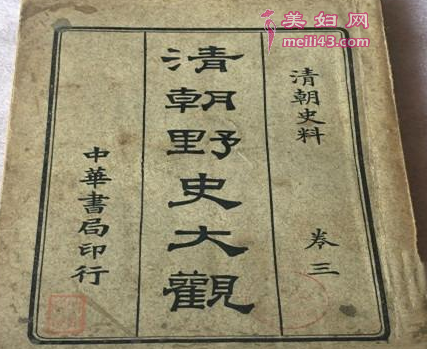 美妇网
meili43.com
清朝史料
卷三
清朝野史大觀
中華書局印行